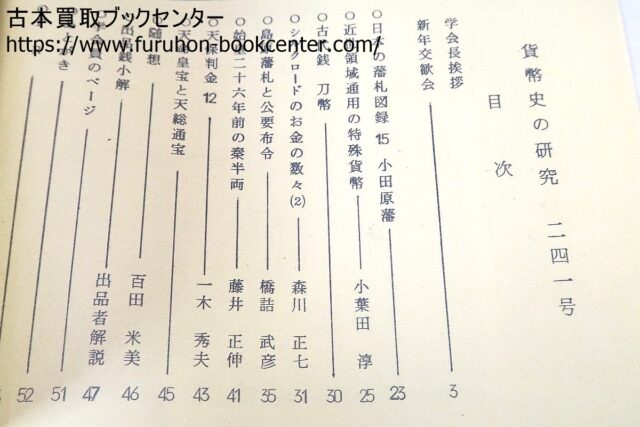 古本買取ブックセンター
https://www.furuhon-bookcenter.com/
貨幣史の研究 二四一号
目次
学会長挨拶
新年交歓会 3
○日本の藩札図録 15 小田原藩 23
○近世領域通用の特殊貨幣 小葉田 淳 25
○古代銭 刀幣 30
○シルクロードのお金の数々(2) 森川 正七 31
○島原藩札と公要布令 橋詰 武彦 35
○始皇二十六年前の秦半両 藤井 正伸 41
○天保判金 12 一木 秀夫 43
○天保皇宝と天総通宝 45
○随想 百田 米美 46
出品銭小解 出品者解説 47
学会員のページ 51
52